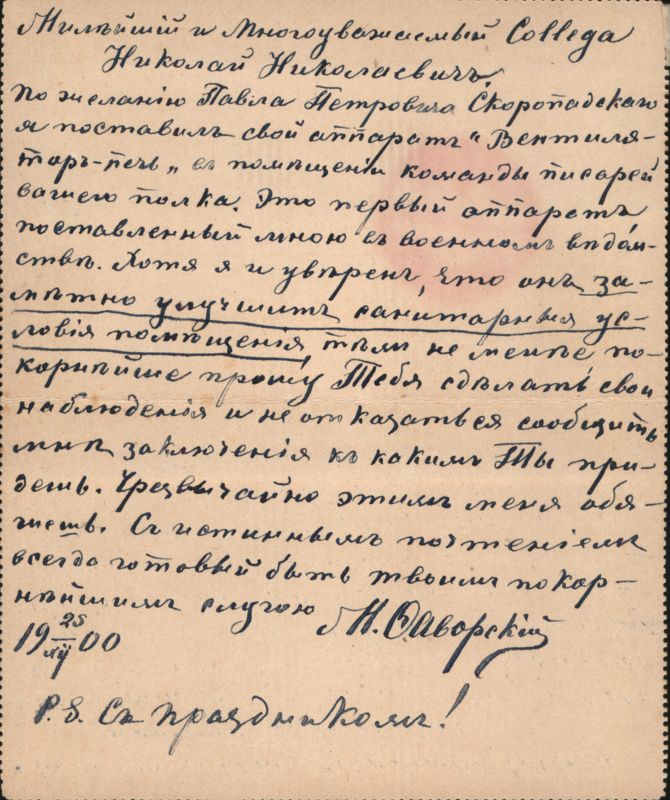 Милѣйшій и Многоуважаемый Collega
Николай Николаевичъ.
По желанію Павла Петровича Скоропадскаго
я поставилъ свой аппаратъ "Вентиля-
торъ-печь" въ помѣщеніи команды писарей
вашего полка. Это первый аппаратъ
поставленный мною въ военномъ вѣдом-
ствѣ. Хотя я и увѣренъ, что онъ за-
мѣтно улучшитъ санитарныя ус-
ловія помѣщенія, тѣмъ не менѣе по-
корнѣйше прошу Тебя сдѣлать свои
наблюденія и не отказаться сообщить
мнѣ заключенія къ какимъ Ты при-
дешь. Чрезвычайно этимъ меня обя-
жешь. Съ истиннымъ почтеніемъ
всегда готовый быть твоимъ покор-
нѣйшимъ слугою М. Фаворскій
19 25/XII 00
P.S. Съ праздникомъ!